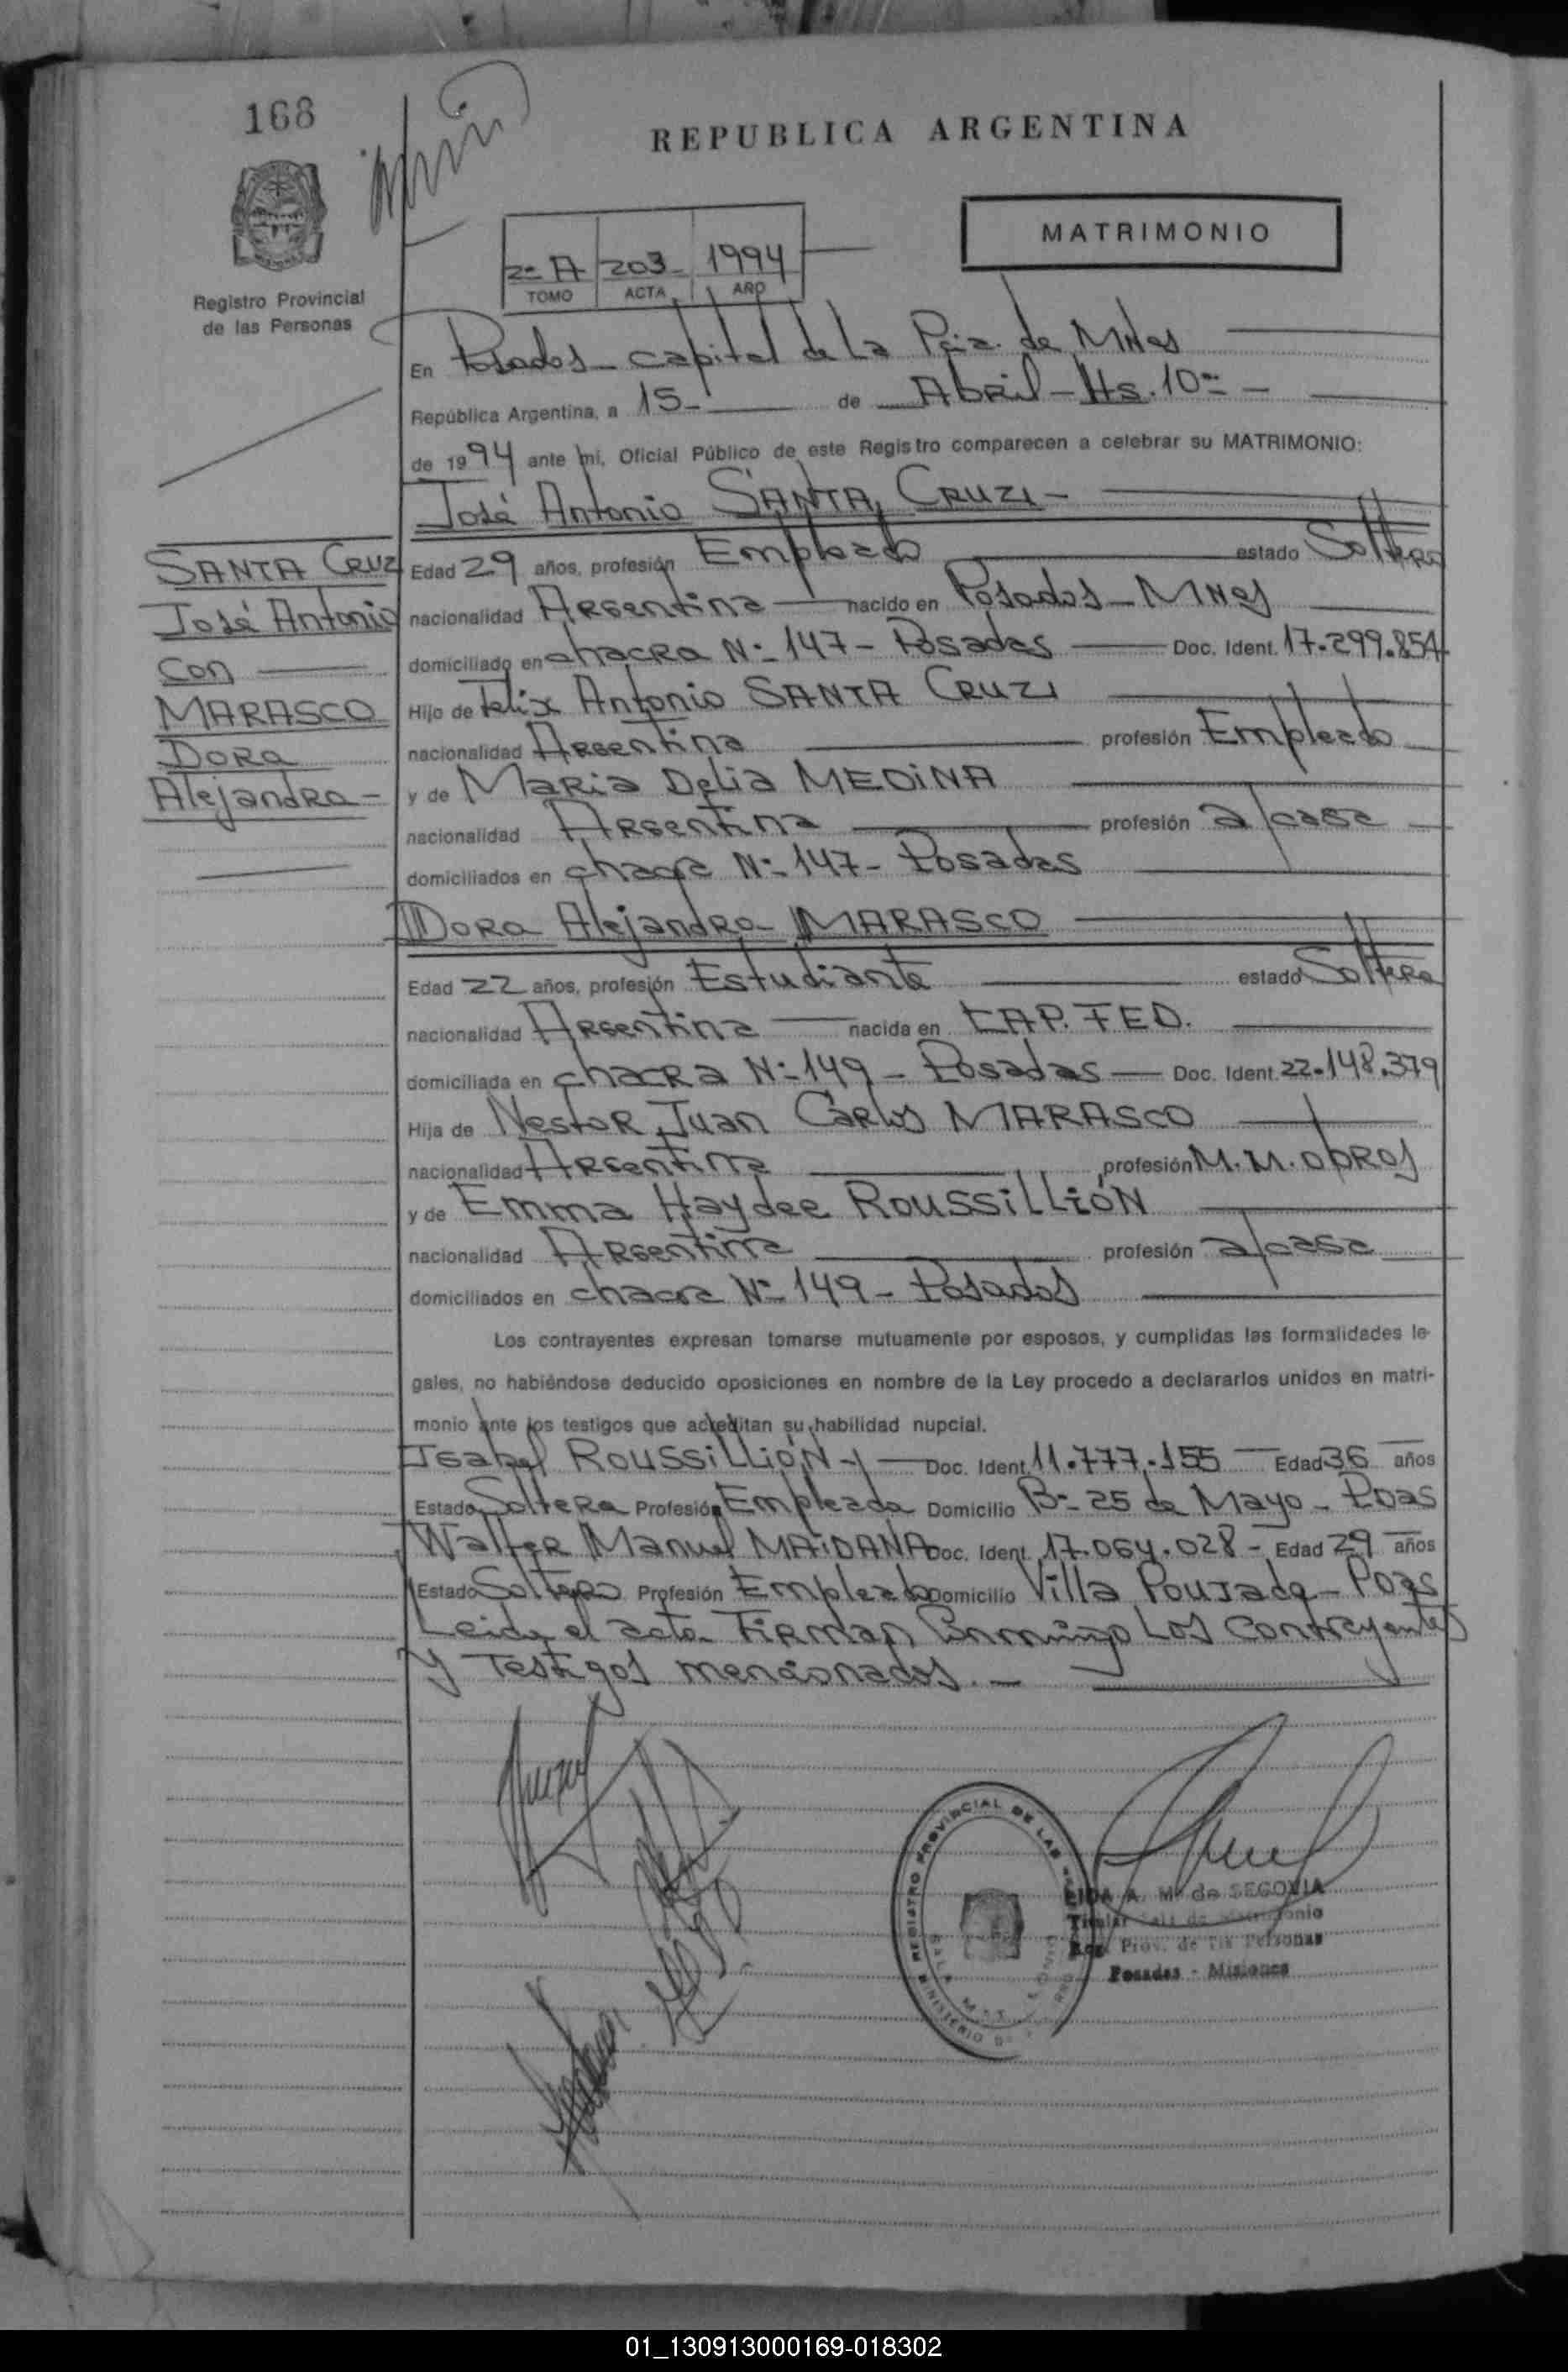 168
REPUBLICA ARGENTINA
MATRIMONIO
2º A 203 1994
TOMO ACTA AÑO
Registro Provincial
de las Personas
En Posadas - capital de La Pcia. de MNes
República Argentina, a 15 - de Abril - Hs. 10 -
de 1994 ante mí, Oficial Público de este Registro comparecen a celebrar su MATRIMONIO:
José Antonio SANTA CRUZ -
SANTA CRUZ
José Antonio
con
MARASCO
DORA
Alejandra -
Edad 29 años, profesión Empleado estado Soltero
nacionalidad Argentina nacido en Posadas - MNes
domiciliado en chacra Nº 147 - Posadas Doc. Ident. 17.299.854
Hijo de Felix Antonio SANTA CRUZ
nacionalidad Argentina profesión Empleado
y de Maria Delia MEDINA
nacionalidad Argentina profesión a/casa
domiciliados en chacra Nº 147 - Posadas
Dora Alejandra MARASCO
Edad 22 años, profesión Estudiante estado Soltera
nacionalidad Argentina nacida en CAP. FED.
domiciliada en chacra Nº 149 - Posadas Doc. Ident. 22.148.379
Hija de Nestor Juan Carlos MARASCO
nacionalidad Argentina profesión M.M. obros
y de Emma Haydee ROUSSILLIÓN
nacionalidad Argentina profesión a/casa
domiciliados en chacra Nº 149 - Posadas
Los contrayentes expresan tomarse mutuamente por esposos, y cumplidas las formalidades le-
gales, no habiéndose deducido oposiciones en nombre de la Ley procedo a declararlos unidos en matri-
monio ante los testigos que acreditan su habilidad nupcial.
Isabel ROUSSILLIÓN - Doc. Ident. 11.777.155 Edad 36 años
Estado Soltera Profesión Empleada Domicilio Bº 25 de Mayo - Pdas
Walter Manuel MAIDANA Doc. Ident. 17.064.028 - Edad 29 años
Estado Soltero Profesión Empleado Domicilio Villa Poujade - Pdas
Leida el acta Firman Conmigo Los Contrayentes
y Testigos mencionados. -
REGISTRO PROVINCIAL DE LAS
MINISTERIO
A. M. de SEGOVIA
Titular
Reg. Prov. de las Personas
Posadas - Misiones
01_130913000169-018302